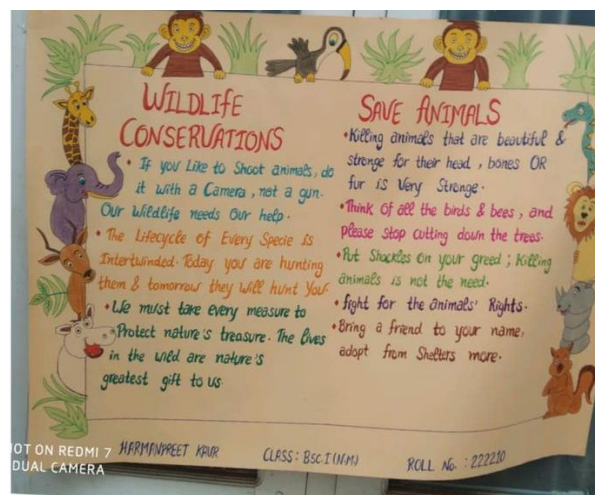 WILDLIFE
CONSERVATIONS
• If you Like to Shoot animals, do
it with a Camera, not a gun.
Our Wildlife needs Our help.
• The Lifecycle of Every Specie is
Intertwinded. Today you are hunting
them & tomorrow they will hunt You.
• We must take every measure to
Protect nature's treasure. The lives
in the wild are nature's
greatest gift to us.
SAVE ANIMALS
• Killing animals that are beautiful &
stronge for their head, bones OR
fur is Very Stronge.
• Think of all the birds & bees, and
please stop cutting down the trees.
• Put Shackles on your greed; Killing
animals is not the need.
• fight for the animals' Rights.
• Bring a friend to your name,
adopt from Shelters more.
HARMANPREET KAUR CLASS: BSC.I (N.M) ROLL No.: 222210
OT ON REDMI 7
DUAL CAMERA